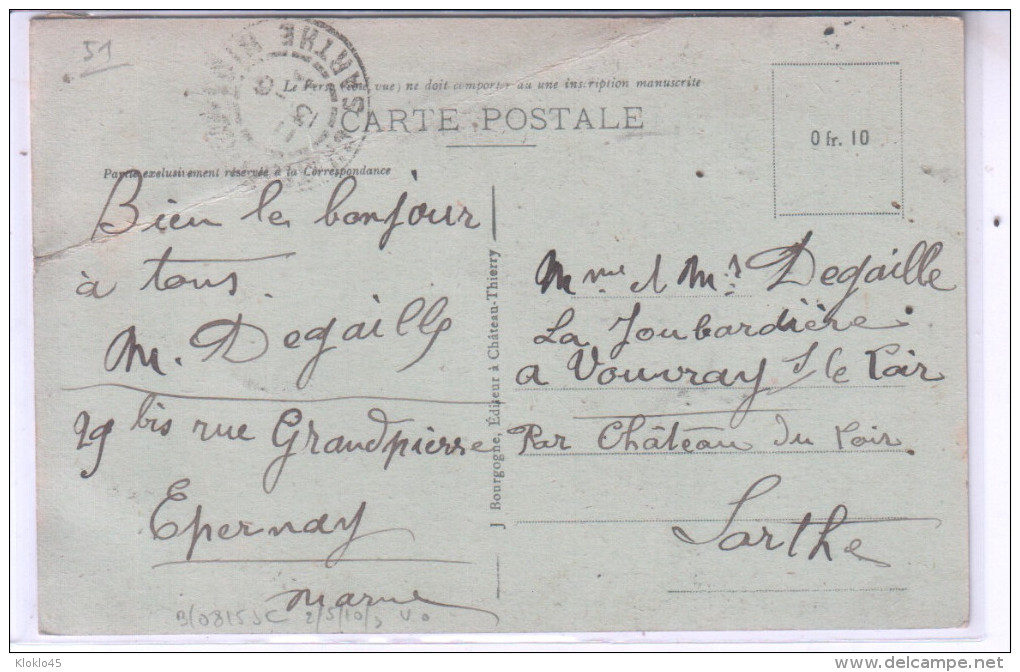 51
SARTHE
13
Le Verso (côté vue) ne doit comporter au une inscription manuscrite
CARTE POSTALE
0 fr. 10
Partie exclusivement réservée à la Correspondance
Bien le bonjour
à tous.
M. Degaille
29 bis rue Grandpierre
Epernay
Marne
J Bourgogne, Éditeur à Château-Thierry
Mme & Mr Degaille
La Joubardière
a Vouvray s/ le Loir
Par Château du Loir
Sarthe
Kloklo45
www.delcampe.net